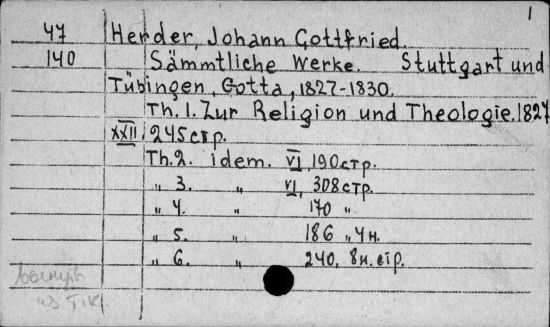 1
47 Herder, Johann Gottfried.
140 Sämmtliche Werke. Stuttgart und
Tübingen, Cotta, 1827-1830.
Th. 1. Zur Religion und Theologie. 1827
XXII, 245 стр.
Th. 2. idem. VI, 190 стр.
" 3. " VI, 308 стр.
" 4. " 170 "
" 5. " 186 " 4 н.
" 6. " 240, 8 н. стр.
из